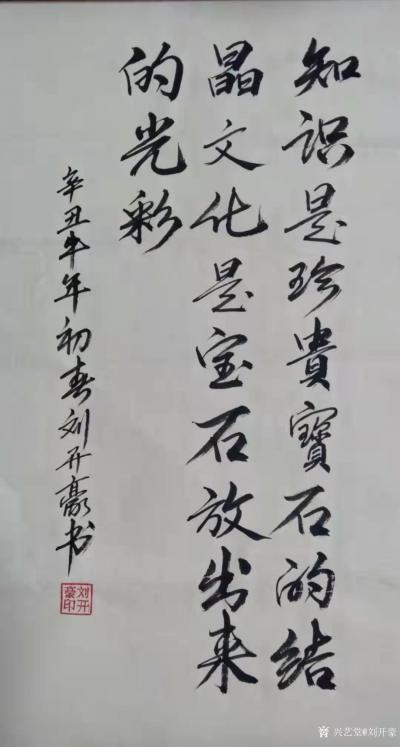 知识是珍貴寶石的结
晶文化是宝石放出来
的光彩
辛丑牛年初春刘开豪书
刘开豪印
兴艺堂@刘开豪